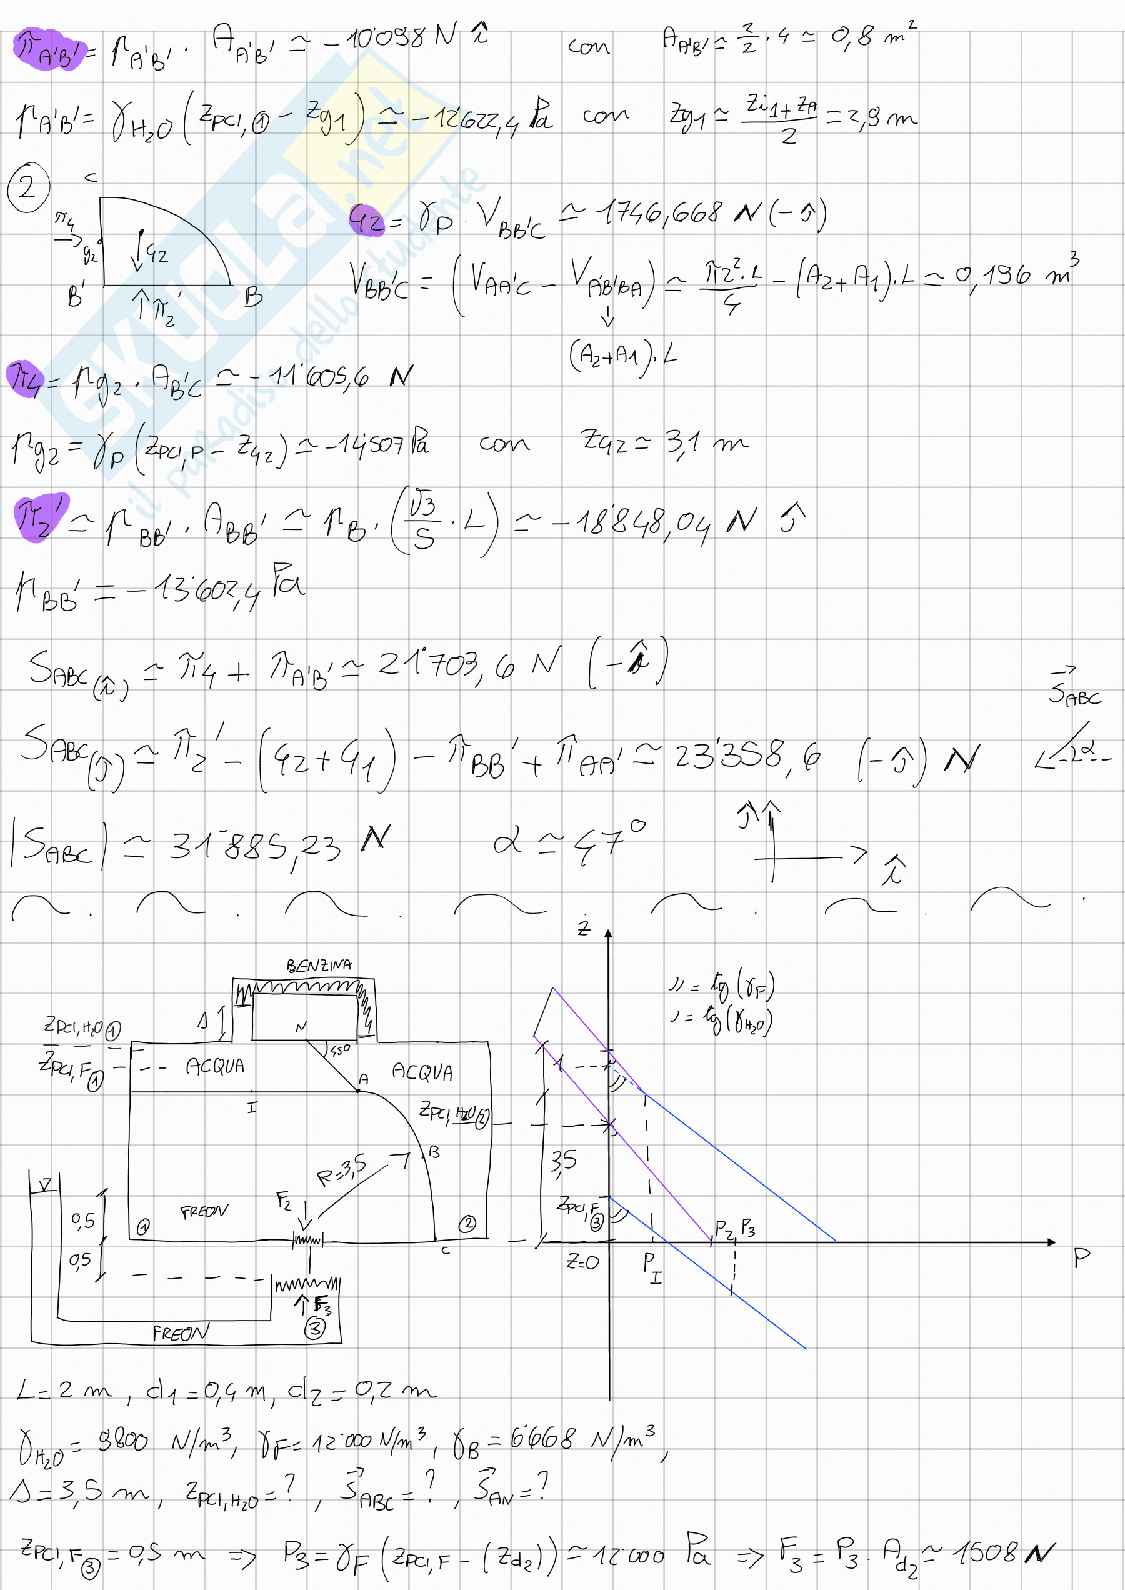 π_A'B' = p_A'B' · A_A'B' ≃ -10'098 N î con A_A'B' ≃ 2/2 · 4 ≃ 0,8 m²
p_A'B' = γ_H2O (z_PCI,① - z_g1) ≃ -12'622,4 Pa con z_g1 ≃ (z_i1 + z_A)/2 = 2,9 m
②
C
π4
g2
q2
B'
π2'
B
q2 = γ_P · V_BB'C ≃ 1746,668 N (-ĵ)
V_BB'C = (V_AA'C - V_A'B'BA) ≃ (πr²·L)/4 - (A2+A1)·L ≃ 0,196 m³
(A2+A1)·L
π4 = p_g2 · A_B'C ≃ -11'605,6 N
p_g2 = γ_P (z_PCI,P - z_g2) ≃ -14'507 Pa con z_g2 ≃ 3,1 m
π2' ≃ p_BB' · A_BB' ≃ p_B · (√3/5 · L) ≃ -18'848,04 N ĵ
p_BB' = -13'602,4 Pa
S_ABC(î) ≃ π4 + π_A'B' ≃ 21'703,6 N (-î)
S_ABC
S_ABC(ĵ) ≃ π2' - (q2+q1) - π_BB' + π_AA' ≃ 23'358,6 (-ĵ) N
α
|S_ABC| ≃ 31'885,23 N α ≃ 47°
ĵ
î
z
BENZINA
" = tg(γ_F)
' = tg(γ_H2O)
Δ
N
45°
z_PCI,H2O①
z_PCI,F①
ACQUA
ACQUA
A
I
z_PCI,H2O②
B
R=3,5
3,5
F2
FREON
①
②
C
z_PCI,F③
0,5
0,5
P2 P3
z=0
P_I
P
F3
③
FREON
L = 2 m, d1 = 0,4 m, d2 = 0,2 m
γ_H2O = 9800 N/m³, γ_F = 12'000 N/m³, γ_B = 6'668 N/m³,
Δ = 3,5 m, z_PCI,H2O = ?, S_ABC = ?, S_AN = ?
z_PCI,F③ = 0,5 m => P3 = γ_F (z_PCI,F - (z_d2)) ≃ 12'000 Pa => F3 = P3 · A_d2 ≃ 1508 N
SKUOLA.net
il paradiso dello studente